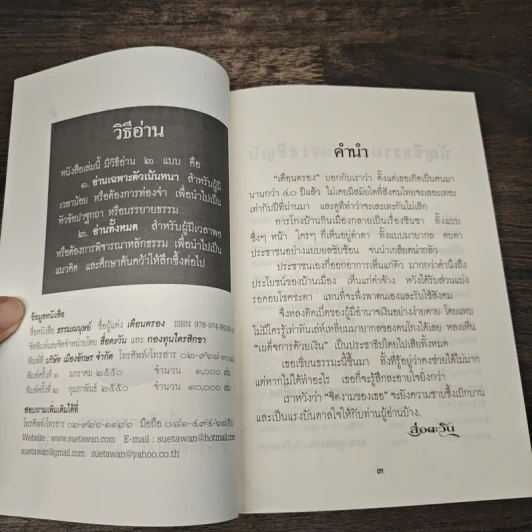 วิธีอ่าน
หนังสือเล่มนี้ มีวิธีอ่าน ๒ แบบ คือ
๑. อ่านเฉพาะตัวเน้นหนา สำหรับผู้มี
เวลาน้อย หรือต้องการท่องจำ เพื่อนำไปเป็น
หัวข้อปาฐกถา หรือบรรยายธรรม
๒. อ่านทั้งหมด สำหรับผู้มีเวลาพอ
หรือต้องการพิจารณาหลักธรรม เพื่อนำไปเป็น
แนวคิด และศึกษาค้นคว้าให้ลึกซึ้งต่อไป
ข้อมูลหนังสือ
ชื่อหนังสือ ธรรมมนุษย์ ชื่อผู้แต่ง เตือนตรอง ISBN 978-974-
จัดพิมพ์และจัดจำหน่ายโดย สื่อตะวัน และ กองทุนไตรสิกขา
พิมพ์ที่ บริษัท เมืองอักษร จำกัด โทรศัพท์/โทรสาร
พิมพ์ครั้งที่ ๑ มกราคม ๒๕๕๐ จำนวน ๑,๐๐๐ เล่ม
พิมพ์ครั้งที่ ๒ กุมภาพันธ์ ๒๕๕๐ จำนวน ๑๐,๐๐๐ เล่ม
สอบถามเพิ่มเติมได้ที่
โทรศัพท์/โทรสาร มือถือ
Website : www.suetawan.com E-mail : suetawan@hotmail.com
suetawan@gmail.com suetawan@yahoo.co.th
คำนำ
"เตือนตรอง" บอกกับเราว่า ตั้งแต่เธอเกิดเป็นคนมา
นานกว่า ๔๐ ปีแล้ว ไม่เคยมีสมัยใดที่สังคมไทยจะเลอะเทอะ
เท่ากับปีที่ผ่านมา และดูทีท่าว่าจะเลอะเทะกันไม่เลิก
การโกงบ้านกินเมืองกลายเป็นเรื่องชินชา ทั้งแบบ
ซึ่งๆ หน้า ใครๆ ก็เห็นอยู่ตำตา ทั้งแบบมายากล ตบตา
ประชาชนอย่างแยบยลซับซ้อน จนน่าเกลียดน่ากลัว
ประชาชนเองก็ออกอาการเห็นแก่ตัว มากกว่าคำนึงถึง
ประโยชน์ของบ้านเมือง เห็นแก่ค่าจ้าง หวังได้รับส่วนแบ่ง
รอคอยโชคชะตา แทนที่จะพึ่งพาตนเองและรับใช้สังคม
จึงหลงติดเบ็ดของผู้มีอำนาจเงินอย่างง่ายดาย โดยแทบ
ไม่มีใครรู้เท่าทันเล่ห์เหลี่ยมมายากลของคนโกงได้เลย หลงเห็น
"เผด็จการด้วยเงิน" เป็นประชาธิปไตยไปเสียทั้งหมด
เธอเขียนธรรมะนี้ขึ้นมา ทั้งที่รู้อยู่ว่าคงช่วยได้ไม่มาก
แต่หากไม่ได้ทำอะไร เธอก็จะรู้สึกละอายใจยิ่งกว่า
เราหวังว่า "จิตงามของเธอ" จะยังความซาบซึ้งเบิกบาน
และเป็นแรงบันดาลใจ ให้กับท่านผู้อ่านบ้าง.
สื่อตะวัน
๓